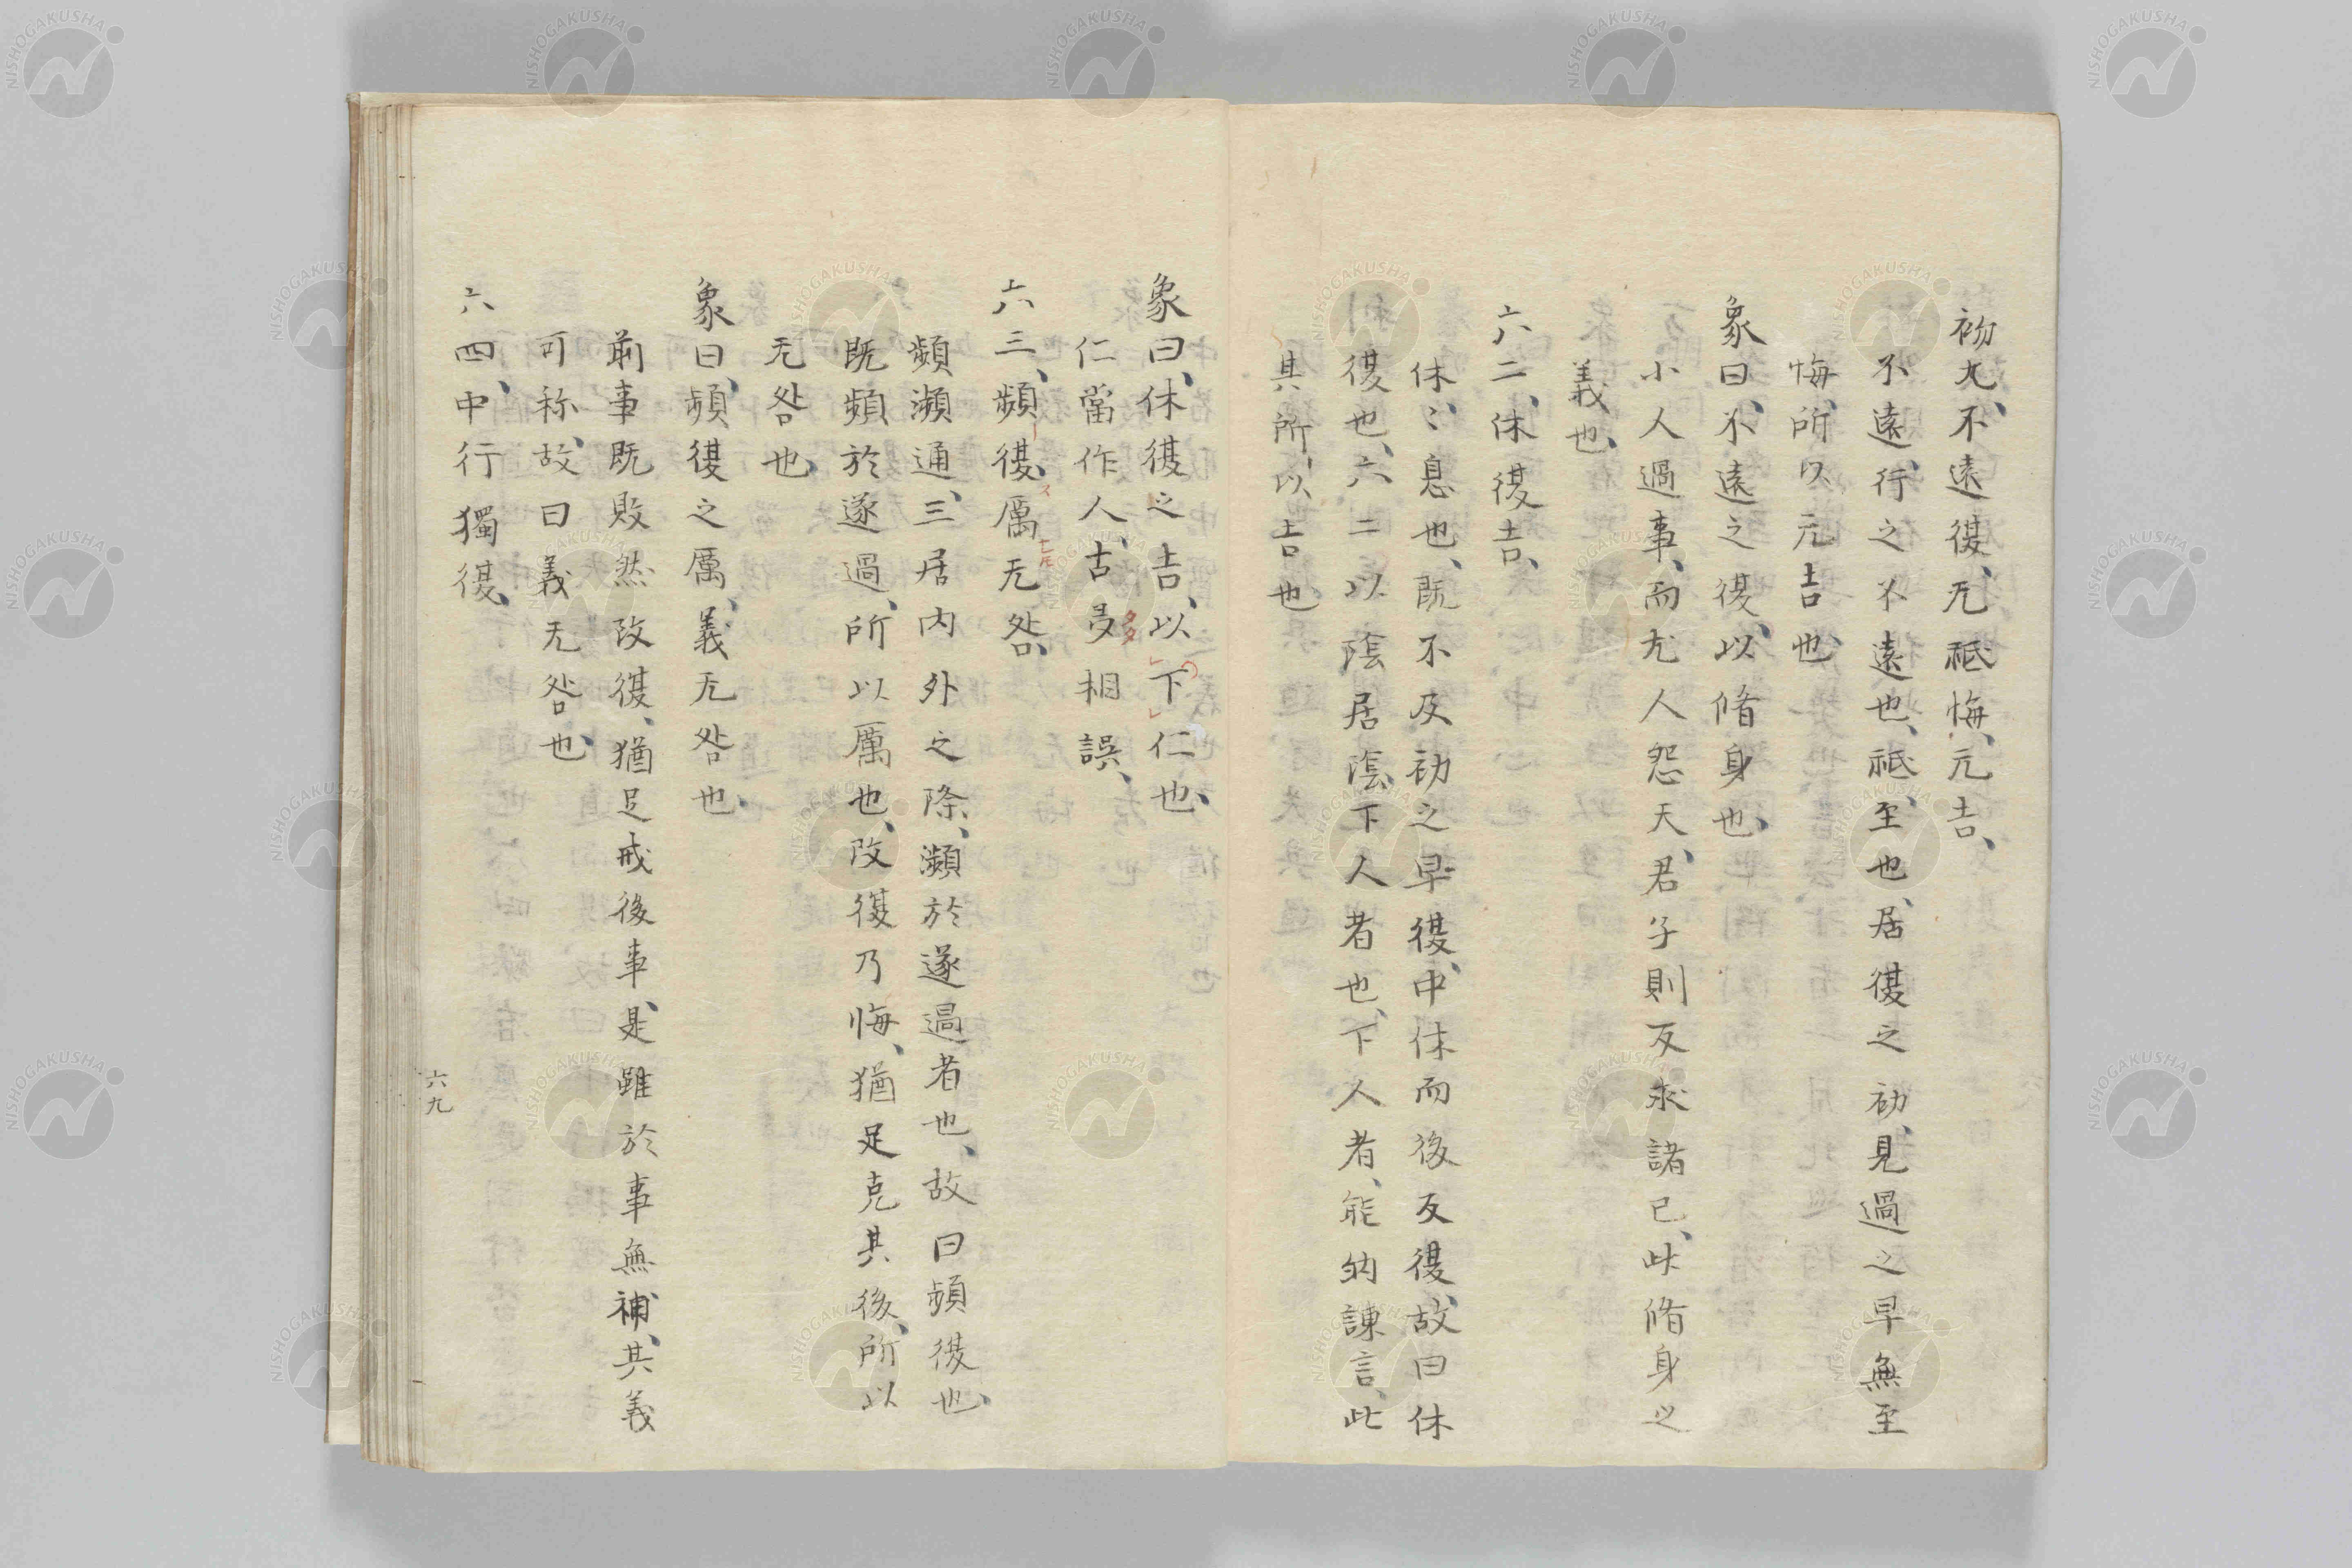 初九、不遠復、无祗悔、元吉、
不遠、行之不遠也、祗、至也、居復之初、見過之早無至
悔、所以元吉也、
象曰、不遠之復、以脩身也、
小人過事、而尤人怨天、君子則反求諸已、此脩身之
義也、
六二、休復吉、
休、〻息也、既不及初之早復、中休而後反復、故曰休
復也、六二以陰居陰、下人者也、下人者、能納諫言、此
其所以吉也
象曰、休復之吉、以下仁也、
仁當作人、古多相誤、
六三、頻復、厲无咎、
頻瀕通、三居内外之際、瀕於遂過者也、故曰頻復也、
既頻於遂過、所以厲也、改復乃悔、猶足克其後、所以
无咎也、
象曰、頻復之厲、義无咎也、
前事既敗然改復、猶足戒後事、是雖於事無補、其義
可称、故曰義无咎也、
六四、中行獨復、
六九
NISHOGAKUSHA